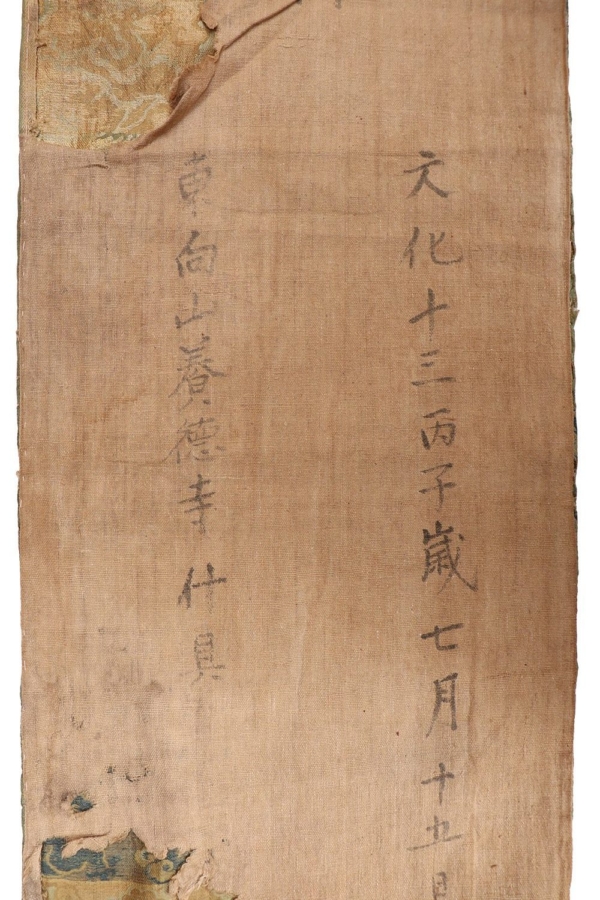 文化十三丙子歳七月十五日
東向山養徳寺什具